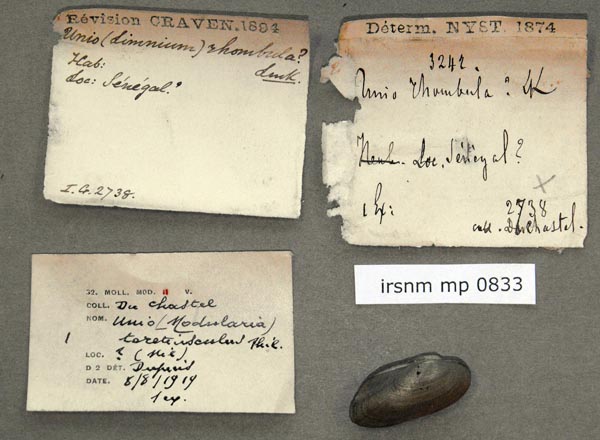 Révision CRAVEN.1894
Unio (Limnium) rhombula?
Lmk.
Hab:
Loc: Sénégal?
I.G. 2738.
Déterm. NYST. 1874
3242.
Unio rhombula? LK
Loc. Sénégal?
1 Ex:
2738
coll. Duchastel.
irsnm mp 0833
G2. MOLL. MOD. II V.
COLL. Du Chastel
NOM. Unio (Nodularia)
1 teretiusculus Phil.
LOC. ? (Nil).
D 2 DÉT. Dupuis
DATE. 8/8/1919
1 ex.